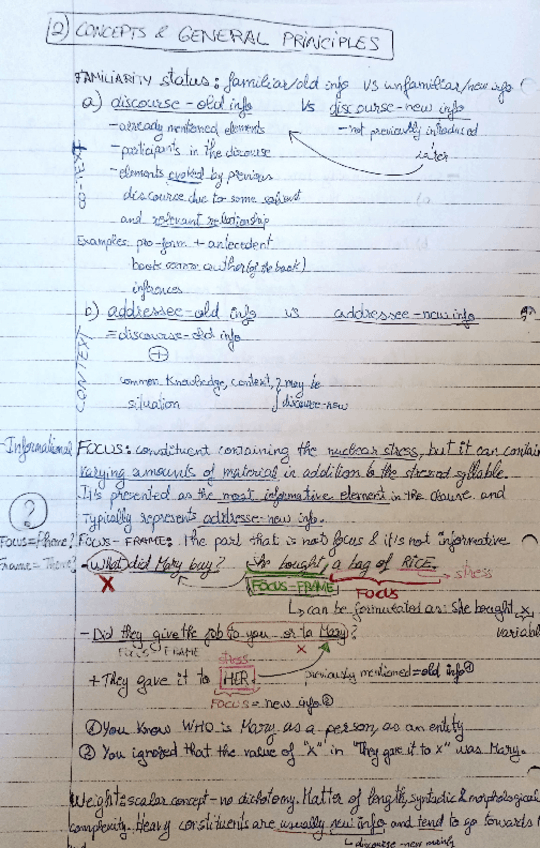 2) CONCEPTS & GENERAL PRINCIPLES
FAMILIARITY status: familiar/old info VS unfamiliar/new info
a) discourse-old info VS discourse-new info
- already mentioned elements - not previously introduced
- participants in the discourse Later
CO-TEXT
- elements evoked by previous
discourse due to some salient
and relevant relationship
Examples: pro-form + antecedent
book author (of the book)
inferences
b) addressee-old info vs addressee-new info
= discourse-old info
+
CONTEXT
common knowledge, context, } may be
situation discourse-new
- Informational FOCUS: constituent containing the nuclear stress, but it can contain
varying amounts of material in addition to the stressed syllable.
It is presented as the most informative element in the clause and
?
typically represents addresse-new info.
Focus = Rheme? FOCUS-FRAME: The part that is not focus & it's not informative
Frame = Theme? - What did Mary buy? She bought a bag of RICE. → stress
X FOCUS-FRAME FOCUS
↳ can be formulated as: She bought x,
variable
- Did they give the job to you or to Mary?
FOCUS FRAME X
stress
+ They gave it to HER. previously mentioned = old info ①
FOCUS = new info ②
① You know WHO is Mary as a person, as an entity
② You ignored that the value of "X" in "They gave it to x" was Mary.
Weight: scalar concept - no dichotomy. Matter of length, syntactic & morphological
complexity. Heavy constituents are usually new info and tend to go towards
↳ discourse-new mainly